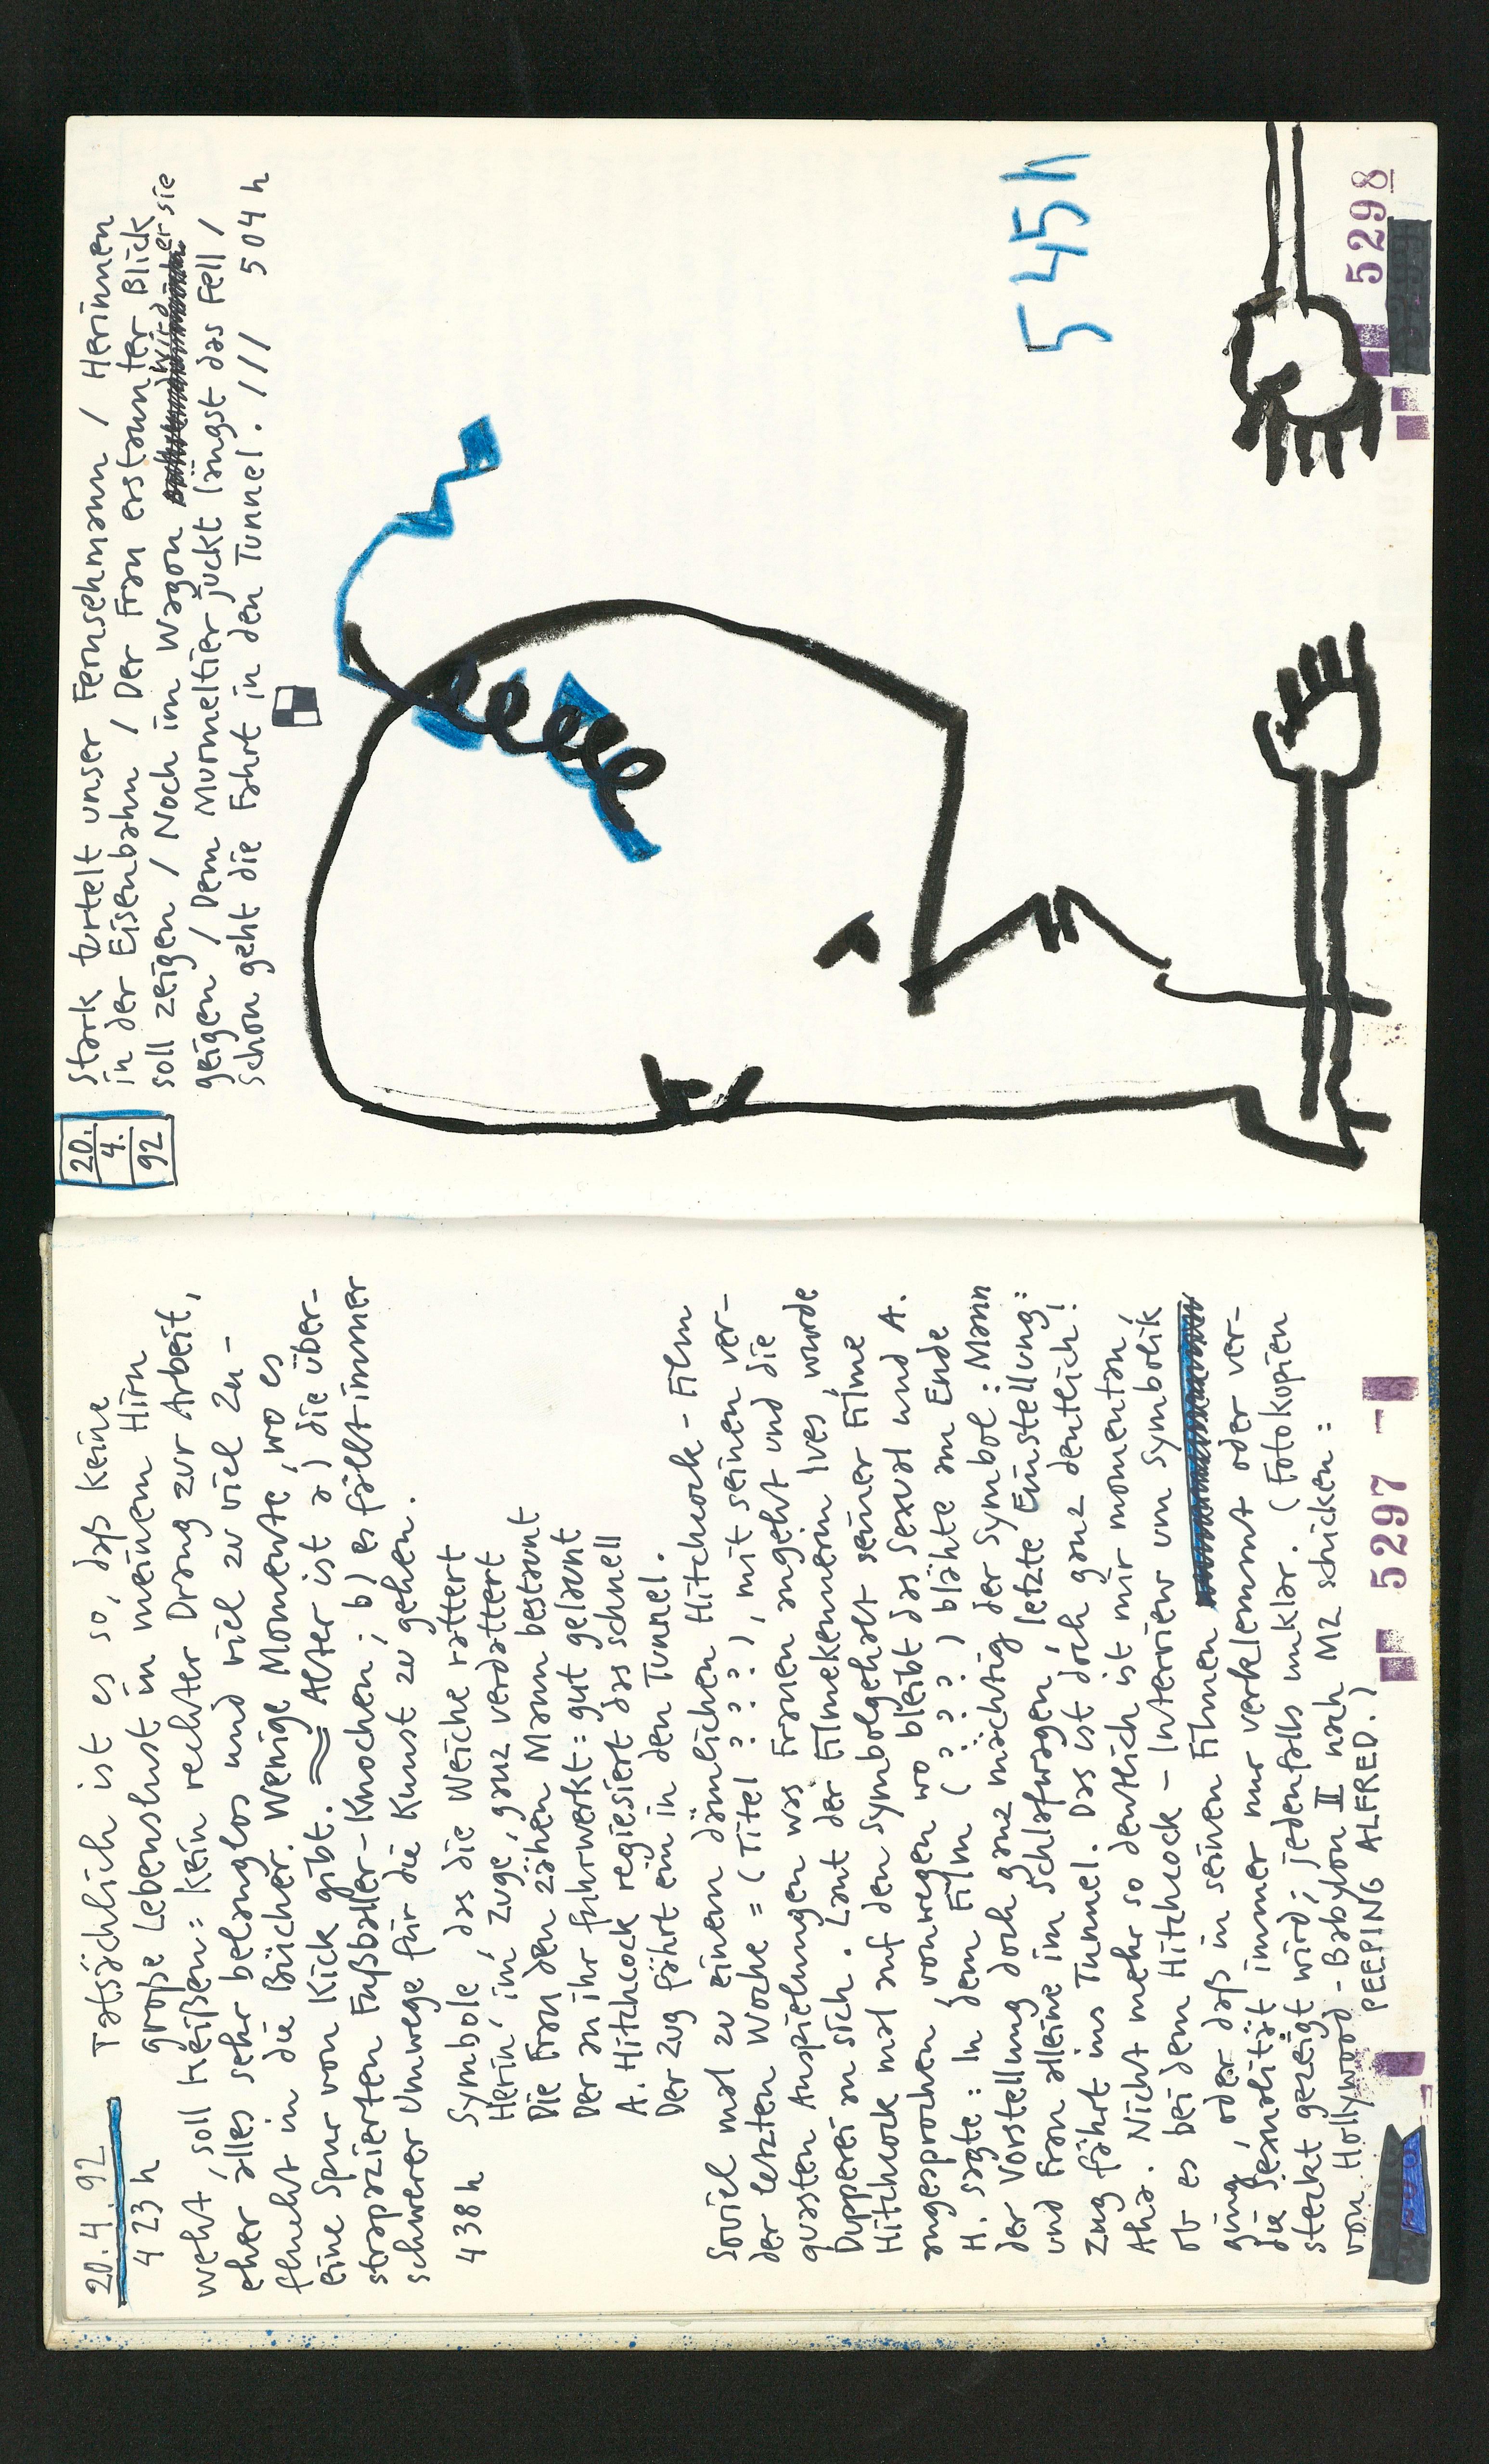 20.4.92 Tatsächlich ist es so, daß keine
423 h große Lebenslust in meinem Hirn
weht, soll heißen: kein rechter Drang zur Arbeit,
eher alles sehr belanglos und viel zu viel Zu-
flucht in die Bücher. Wenige Momente, wo es
eine Spur von Kick gibt. Alter ist a) die über-
strapazierten Fußballer-Knochen; b) es fällt immer
schwerer Umwege für die Kunst zu gehen.
438 h Symbole, das die Weiche rattert
Herin, im Zuge, ganz verdattert
Die Frau den zähen Mann bestaunt
Der an ihr fuhrwerkt: gut gelaunt
A. Hitchcock regiesiert das schnell
Der Zug fährt ein in den Tunnel.
Soviel mal zu einem dämlichen Hitchcock-Film
der letzten Woche = (Titel ? ? ?), mit seinen ver-
quasten Anspielungen was Frauen angeht und die
Dupperei an sich. Laut der Filmekennerin Ives, wurde
Hitchcock mal auf den Symbolgehalt seiner Filme
angesprochen, vonwegen wo bleibt das Sexual und A.
H. sagte: In dem Film (? ? ?) blähte am Ende
der Vorstellung doch ganz mächtig der Symbol: Mann
und Frau alleine im Schlafwagen, letzte Einstellung:
Zug fährt ins Tunnel. Das ist doch ganz deutlich!
Aha. Nicht mehr so deutlich ist mir momentan,
ob es bei dem Hitchcock-Interview um Symbolik
ging, oder daß in seinen Filmen
die Sexualität immer nur verklemmt oder ver-
steckt gezeigt wird; jedenfalls unklar. (Fotokopien
von Hollywood-Babylon II nach MZ schicken:
PEEPING ALFRED.)
5297
20.
4.
92
Stark turtelt unser Fernsehmann / Herinnen
in der Eisenbahn / Der Frau erstaunter Blick
soll zeigen / Noch im Wagon wird er sie
geigen / Dem Murmeltier juckt längst das Fell /
schon geht die Fahrt in den Tunnel. /// 504 h
545 h
5298